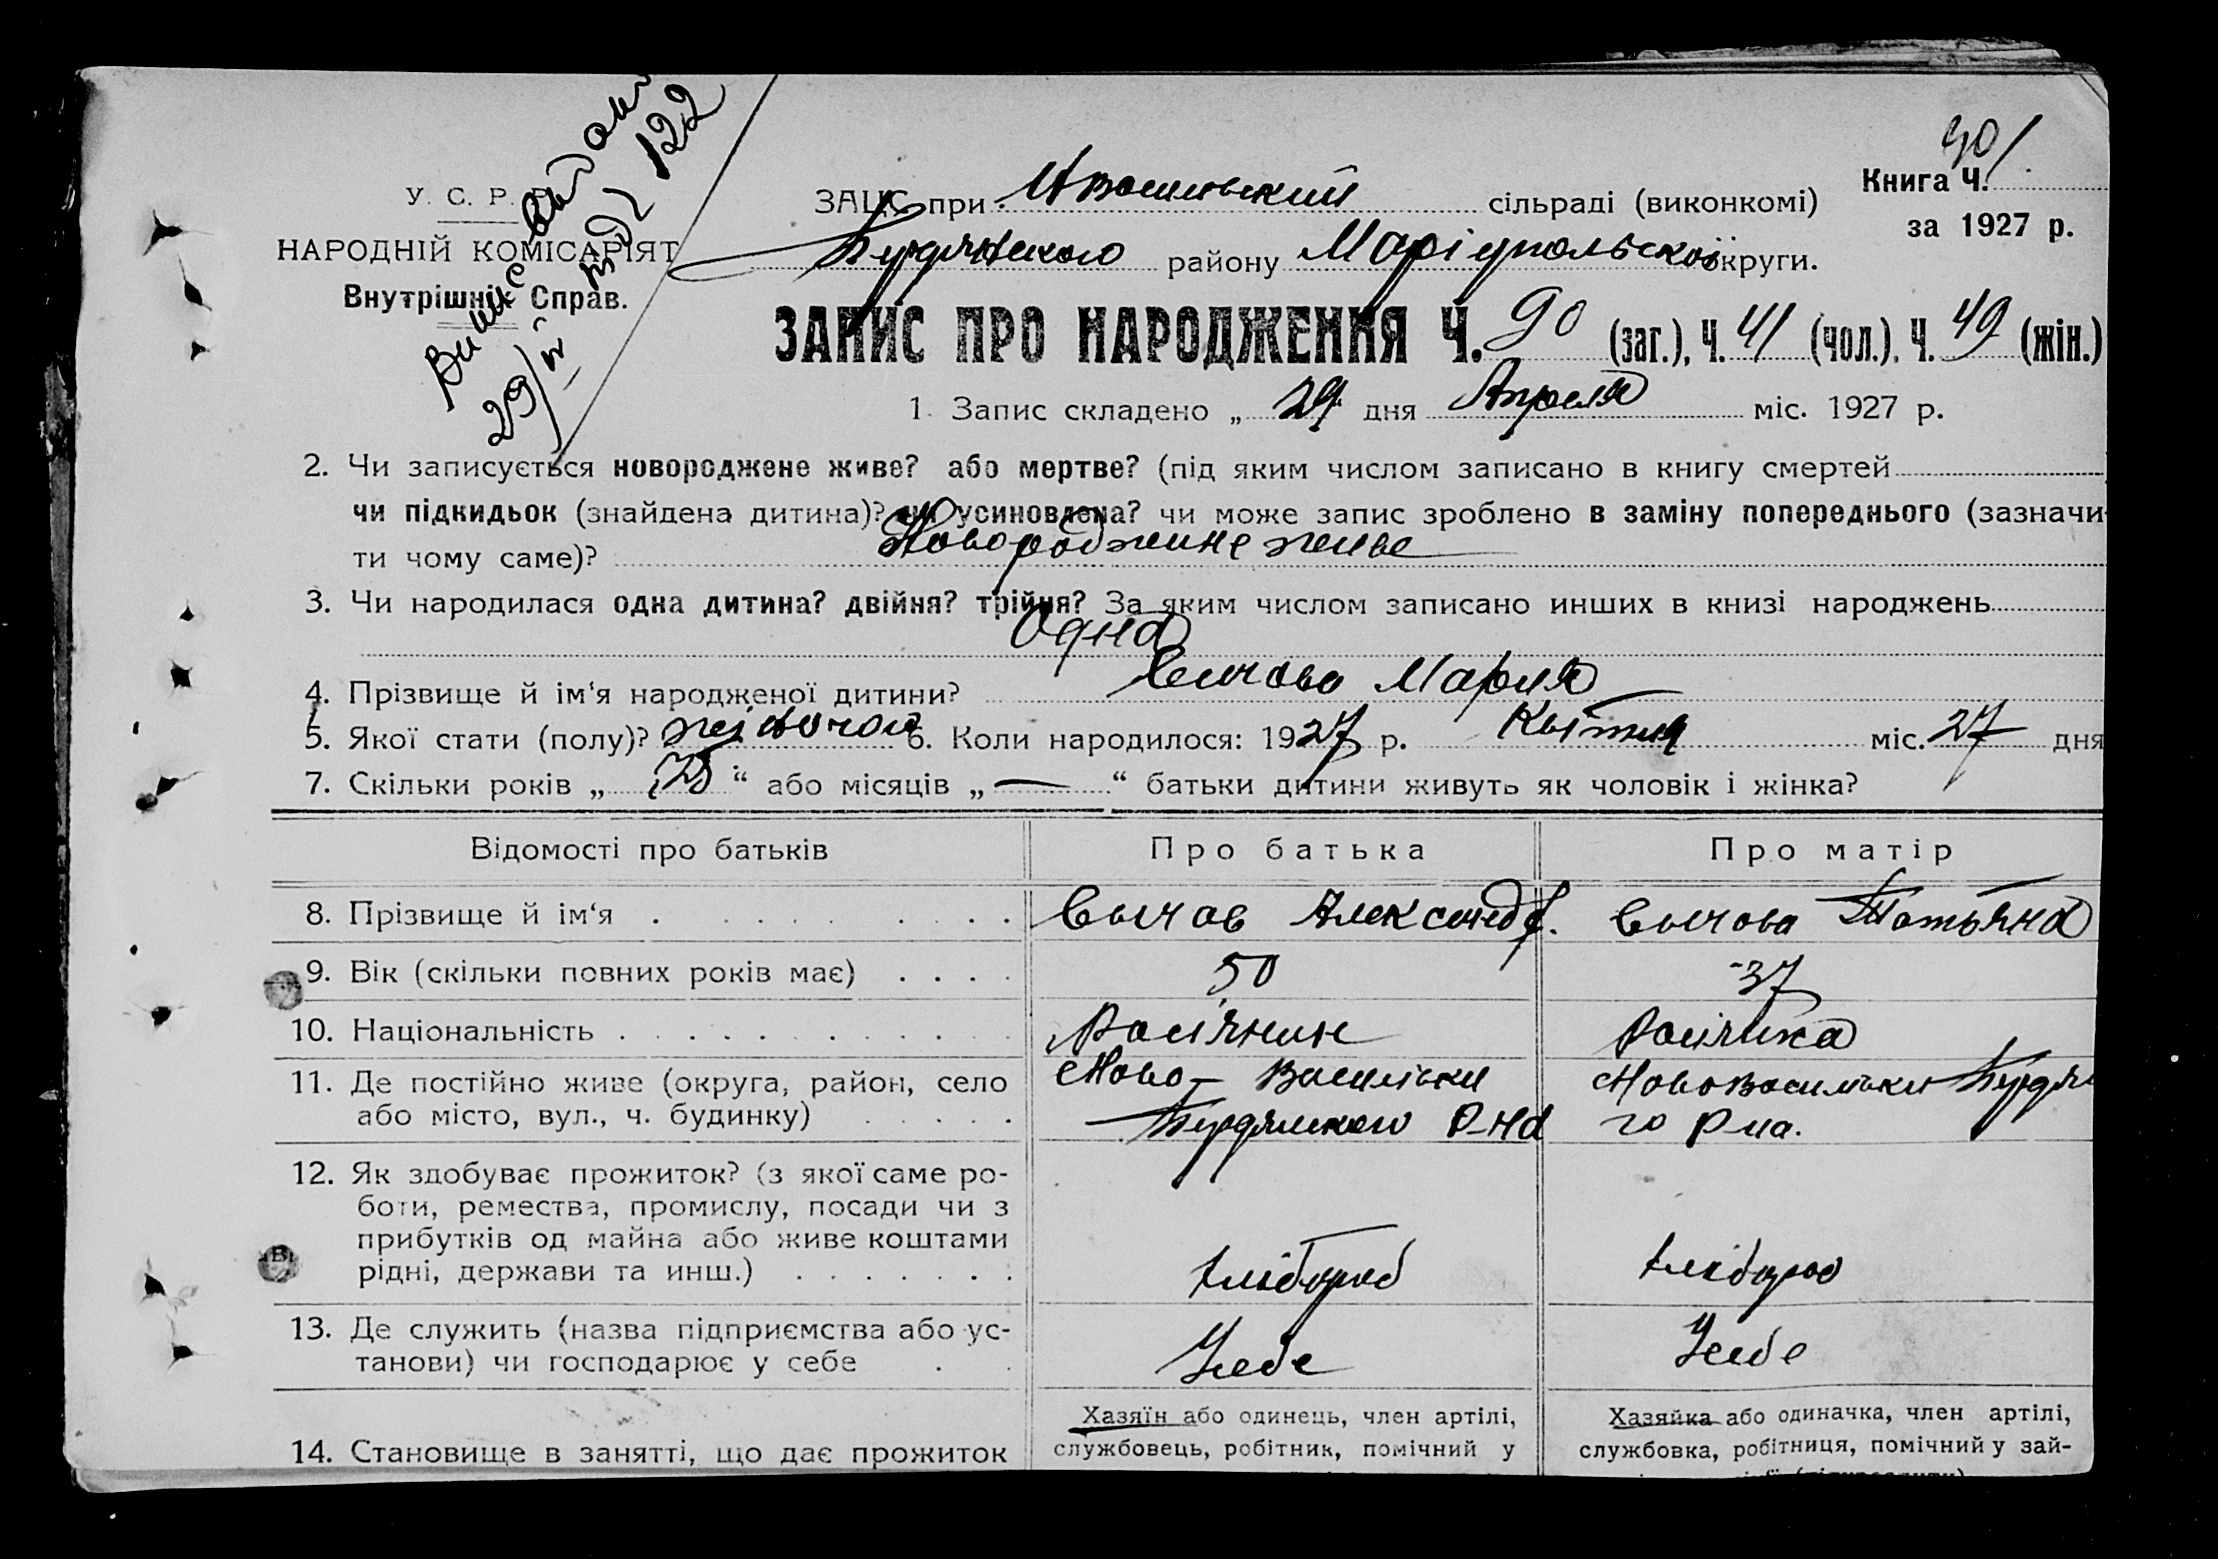 Випис видано
29/IV під № 122
901
У. С. Р. Р.
НАРОДНІЙ КОМІСАРІЯТ
Внутрішніх Справ.
ЗАЦС при Нвасильській сільраді (виконкомі)
Книга Ч.
за 1927 р.
району Маріупольської округи.
ЗАПИС ПРО НАРОДЖЕННЯ Ч. 90 (заг.), Ч. 41 (чол.), Ч. 49 (жін.)
1. Запис складено „ 29 “ дня Апреля міс. 1927 р.
2. Чи записується новороджене живе? або мертве? (під яким числом записано в книгу смертей
чи підкидьок (знайдена дитина)? чи усиновлена? чи може запис зроблено в заміну попереднього (зазначи-
ти чому саме)? Новороджене живе
3. Чи народилася одна дитина? двійня? трійня? За яким числом записано инших в книзі народжень
Одна
4. Прізвище й ім‘я народженої дитини? Сычова Мария
5. Якої стати (полу)? жіночої 6. Коли народилося: 1927 р. Квітня міс. 27 дня
7. Скільки років „ “ або місяців „ — “ батьки дитини живуть як чоловік і жінка?
Відомості про батьків Про батька Про матір
8. Прізвище й ім‘я Сычов Александр. Сычова Татьяна
9. Вік (скільки повних років має) 50 37
10. Національність Росіянин Росіянка
11. Де постійно живе (округа, район, село Ново-Васильівки НовоВасильівки
або місто, вул., ч. будинку) Р-на го Р-на.
12. Як здобуває прожиток? (з якої саме ро-
боти, ремества, промислу, посади чи з
прибутків од майна або живе коштами
рідні, держави та инш.) хлібороб хлібороб
13. Де служить (назва підприємства або ус-
танови) чи господарює у себе У себе У себе
Хазяїн або одинець, член артілі, Хазяйка або одиначка, член артілі,
14. Становище в занятті, що дає прожиток службовець, робітник, помічний у службовка, робітниця, помічний у зай-